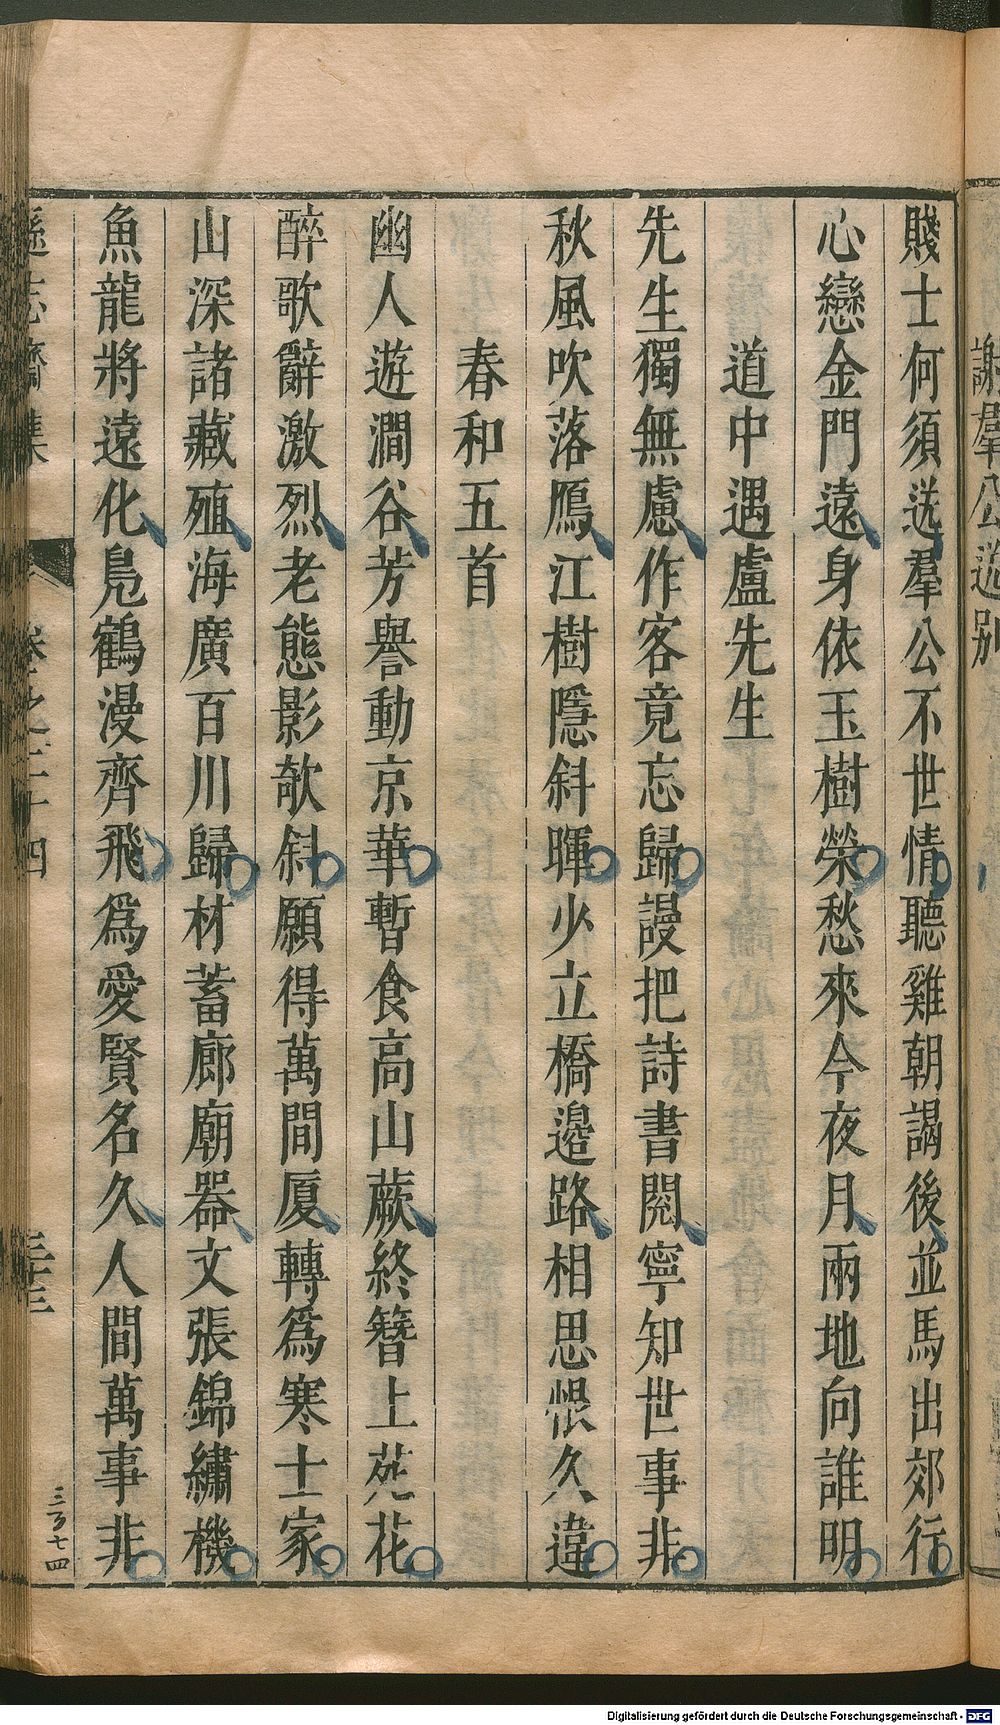 謝羣公送別
賤士何須送羣公不世情聽雞朝謁後並馬出郊行
心戀金門遠身依玉樹榮愁來今夜月兩地向誰明
道中遇盧先生
先生獨無慮作客竟忘歸謾把詩書閱寧知世事非
秋風吹落鴈江樹隱斜暉少立橋邉路相思恨久違
春和五首
幽人遊澗谷芳譽動京華暫食高山蕨終簪上苑花
醉歌辭激烈老態影欹斜願得萬間厦轉爲寒士家
山深諸藏殖海廣百川歸材蓄廊廟器文張錦繡機
魚龍將遠化鳧鶴漫齊飛爲愛賢名久人間萬事非
遜志齋集
卷之二十四
三十三
三百七四
Digitalisierung gefördert durch die Deutsche Forschungsgemeinschaft - DFG